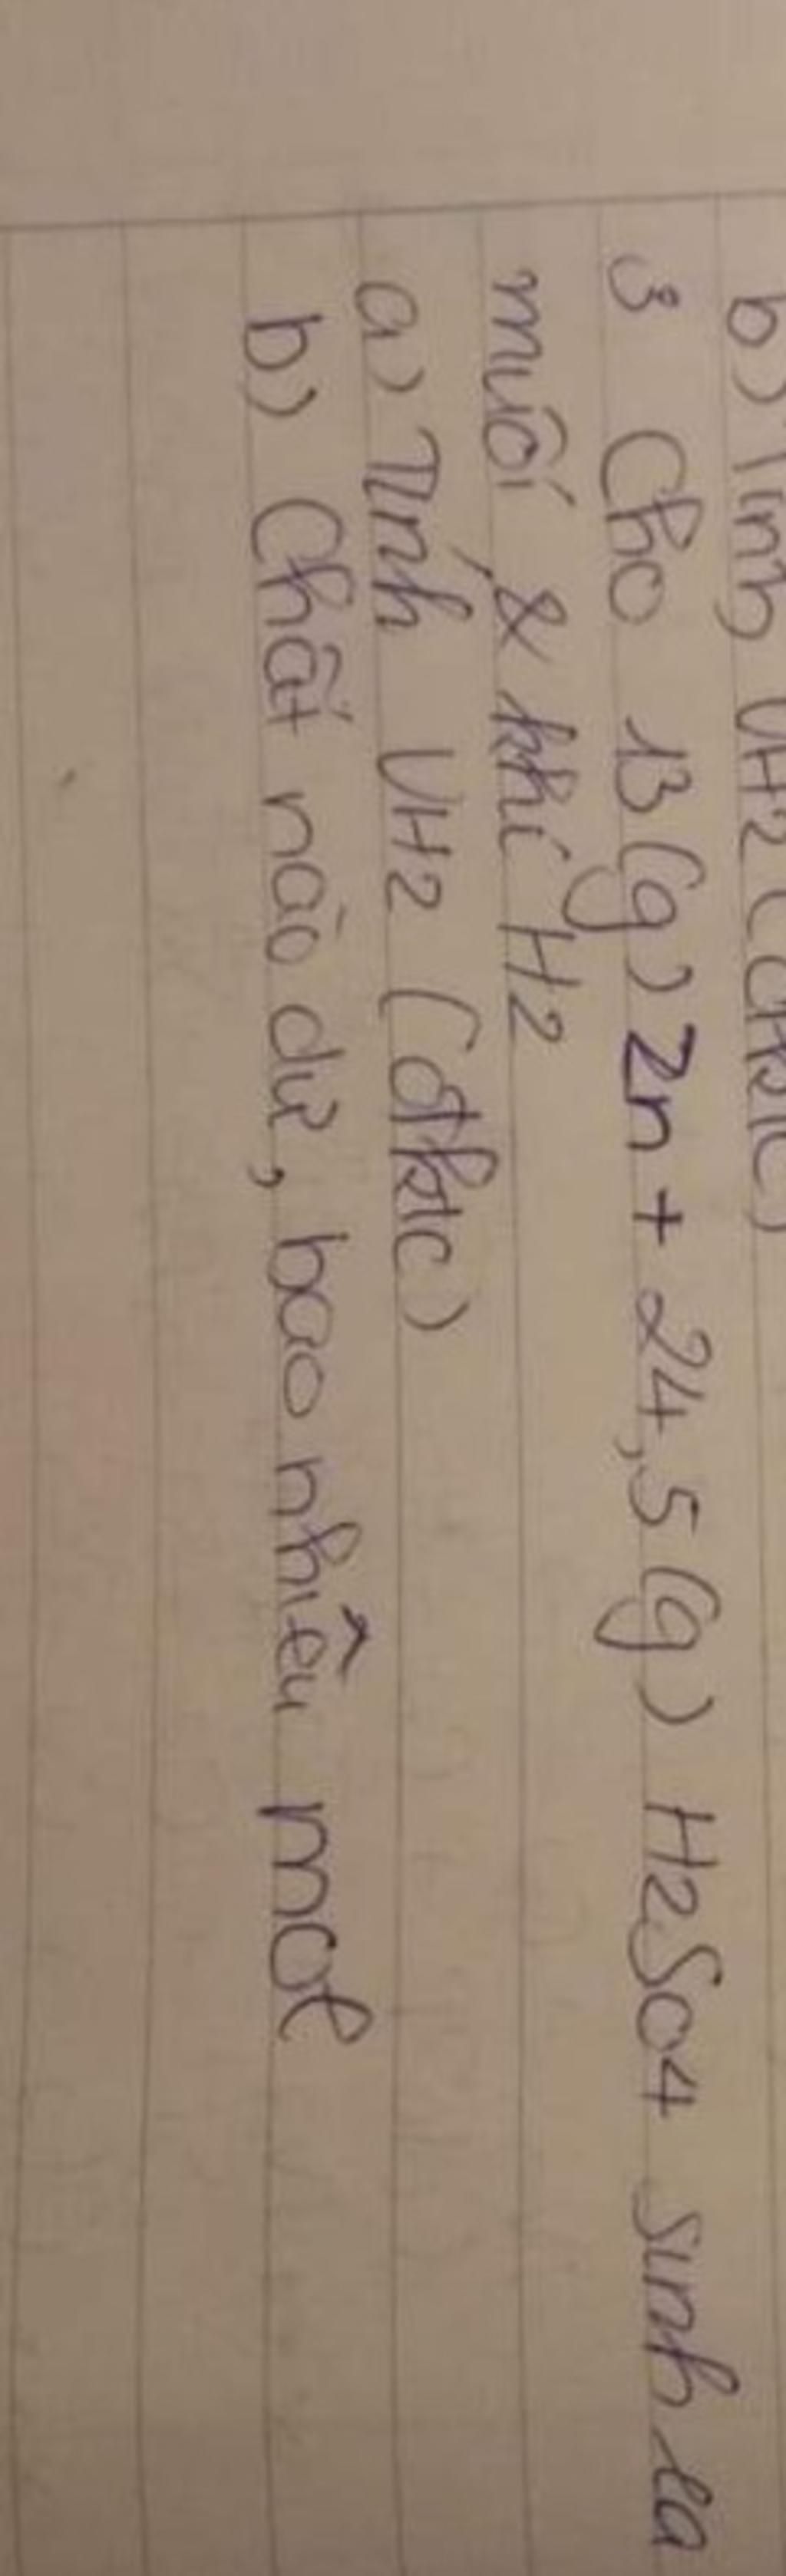 b) Tính VH2 (đktc)
3 Cho 13 (g) Zn + 24,5 (g) H2SO4 sinh ra
muối & khí H2
a) Tính VH2 (đktc)
b) Chất nào dư, bao nhiêu mol